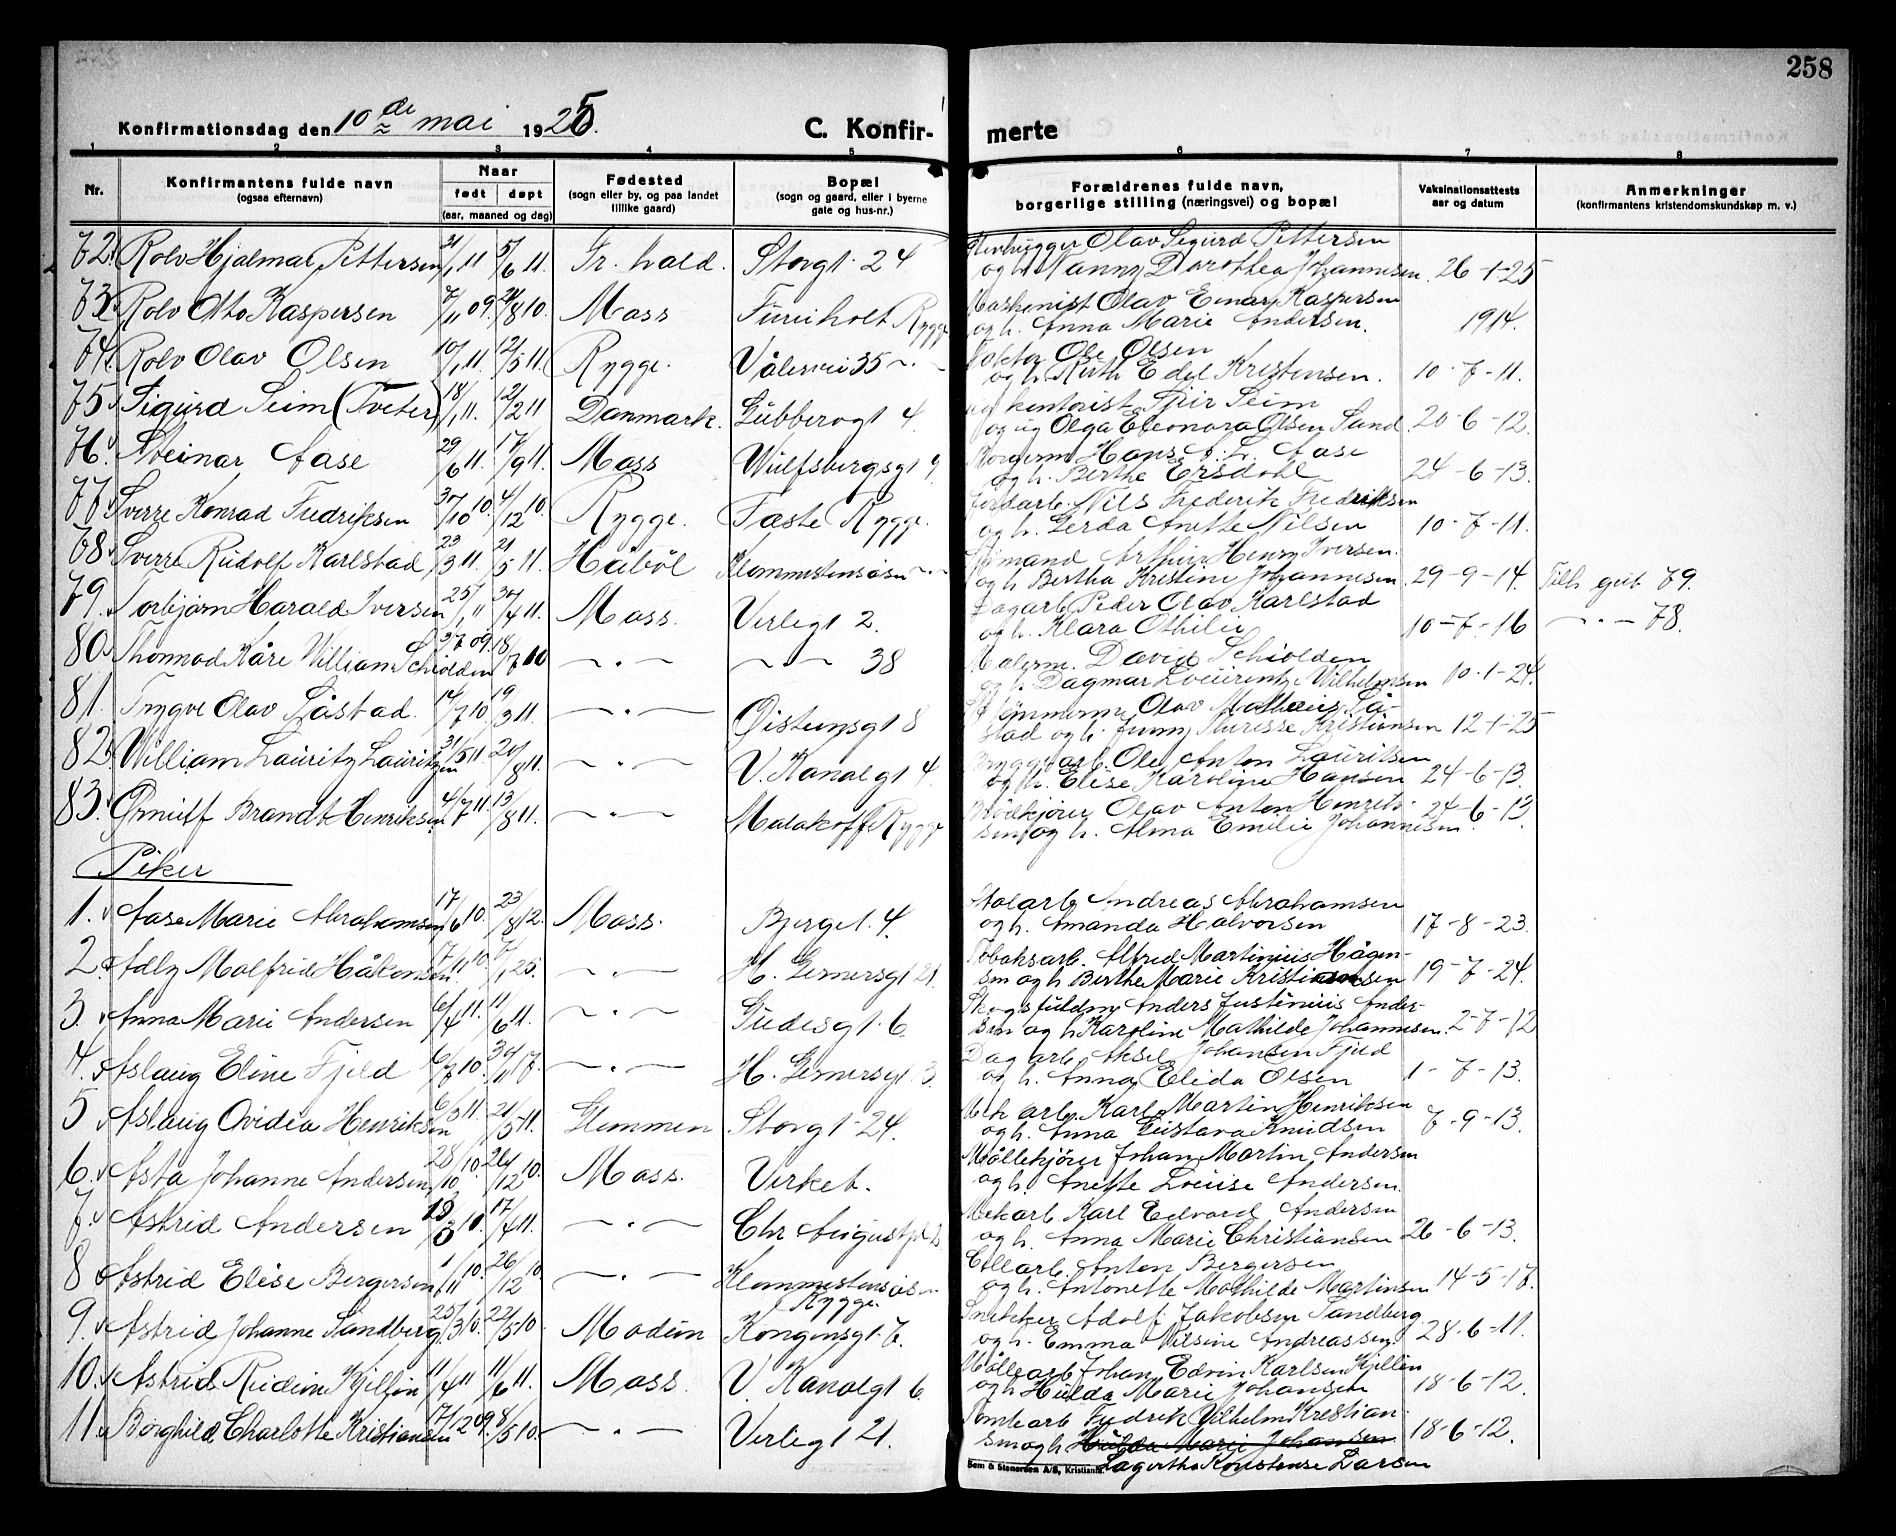 258
Konfirmationsdag den 10de mai 1925. C. Konfir- merte
1 2 3 4 5 6 7 8
Nr. Konfirmantens fulde navn (ogsaa efternavn) Naar født døpt (aar, maaned og dag) Fødested (sogn eller by, og paa landet tillike gaard) Bopæl (sogn og gaard, eller i byerne gate og hus-nr.) Forældrenes fulde navn, borgerlige stilling (næringsvei) og bopæl Vaksinationsattests aar og datum Anmerkninger (konfirmantens kristendomskundskap m. v.)
72. Rolv Hjalmar Pettersen 21/1 11 5/6 11. Fr. hald. Storgt. 24 Stenhugger Olav Sigurd Pettersen
og h. Nanny Dorothea Johannesen. 26-1-25
73. Rolv Otto Kaspersen 7/11 09. 8 10. Moss Fureholt Rygge Maskinist Olav Einar Kaspersen
og h. Anna Marie Andersen. 1914.
74. Rolv Olav Olsen 10/1 11. 12/5 11. Rygge. Vålervei 35 Ole Olsen
og h. Ruth Edel Kristensen. 10-7-11.
75. Sigurd Seim (Tveter) 18/1 11. 12/2 11 Danmark. Gubberogt 4. kontorist Seim
og ug Olga Eleonora Olsen Sund. 20-6-12.
76. Steinar Aase 29/6 11. 17/9 11. Moss Wulfsbergsgt 9. Hans Aase
og h. Berthe Ersdahl 24-6-13.
77. Sverre Konrad Fredriksen 30/10 10. 4/12 10. Rygge. Taste Rygge. Jordarb. Nils Frederik Fredriksen
og h. Gerda Anette Nilsen 10-7-11.
78. Sverre Rudolf Karlstad 23/3 11. 21/5 11. Håbøl Klommestensåsen Sjømand Arthur Henry Iversen.
og h. Bertha Kristine Johannesen 29-9-14. Tilh. gut 79.
79. Torbjørn Harald Iversen 25/1 11 30/4 11. Moss. Verlegt 2. Dagarb. Peder Olav Karlstad
og h. Klara Othilie 10-7-16 — " — 78.
80. Thormod Kåre William Schiolden 27 09. 18/7 10 — " — — " — 38 Malerm. David Schiolden
og h. Dagmar Lourentze Wilhelmsen 10-1-24.
81. Trygve Olav Såstad. 14/7 10. 19/3 11. — " — Øistensgt 8 Olav Matheus Så-
stad og h. Jenny Therese Kristiansen 12-1-25
82. William Lauritz Lauritzen 31/5 11. 20/8 11. — " — V. Kanalgt 4. Bryggearb. Ole Anton Lauritsen
og h. Elise Karoline Hansen 24-6-13.
83. Ørnulf Brandt Henriksen 4/7 11. 13/8 11. — " — Malakoff Rygge Brødkjører Olav Anton Henrik-
sen og h. Alma Emilie Johannesen. 24-6-13.
Piker
1. Aase Marie Abrahamsen 17/6 10. 23/8 12. Moss. Bjerget. 4. Andreas Abrahamsen
og h. Amanda Halvorsen 17-8-23.
2. Adly Malfrid Håkensen 7/11 10. 7/1 25. — " — H. Gernersgt 21. Tobaksarb. Alfred Martinius Hågen-
sen og h. Berthe Marie Kristiansen 19-7-24.
3. Anna Marie Andersen 6/4 11. 11/6 11. — " — Gudesgt. 6 Anders Justinius Ander-
sen og h. Karoline Mathilde Johannesen. 2-7-12
4. Aslaug Eline Fjeld 6/7 10. 30/11 17. — " — H. Gernersgt. 3 Dagarb. Aksel Johansen Fjeld
og h. Anna Elida Olsen 1-7-13.
5 Aslaug Ovidia Henriksen 6/3 11. 21/5 11. Glemmen Storgt. 24. Mek arb. Karl Martin Henriksen
og h. Anna Gustava Knudsen 7-9-13.
6. Asta Johanne Andersen 28/10 10. 26/12 10. Moss. Verket. Møllekjører Johan Martin Andersen
og h. Anette Louise Andersen.
7. Astrid Andersen 19/3 10. 17/4 11. — " — Chr Augustpl. Mek arb Karl Edvard Andersen
og h. Anna Marie Christiansen 26-6-13.
8 Astrid Elise Bergersen 1/11 10. 26/12 10 — " — Klommestensåsen Rygge. Cellarb. Anton Bergersen
og h. Antonette Mathilde Martinsen 14-5-17.
9. Astrid Johanne Sandberg 25/3 10. 22/5 10 Modum Kongensgt. 7. Snekker Adolf Jakobsen Sandberg
og h. Emma Nilsine Andreassen. 28-6-11.
10. Astrid Reidun Kjellén 11/4 11 11/6 11. Moss. V. Kanalgt 6. Møllearb Johan Edvin Karlsen Kjellén
og h. Hulda Marie Johansen 18-6-12.
11. Borghild Charlotte Kristiansen 17/12 09. 8/5 10. — " — Verlegt 21. Tomtearb Fredrik Vilhelm Kristian-
sen og h. Hulda Marie Johansen 18-6-12.
Sem & Stenersen A/S, Kristiania Lagertha Konstanse Larsen